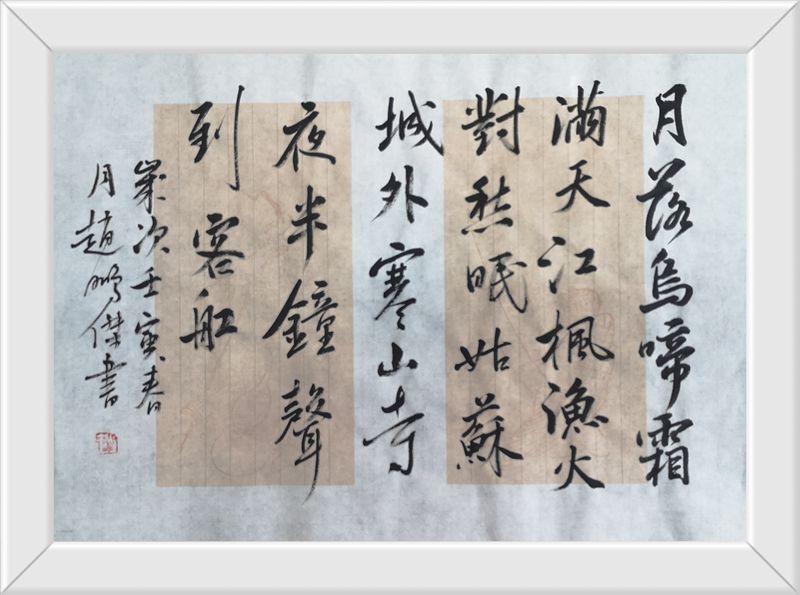 月落烏啼霜
滿天江楓漁火
對愁眠姑蘇
城外寒山寺
夜半鐘聲
到客船
歲次壬寅春
月趙鵬傑書